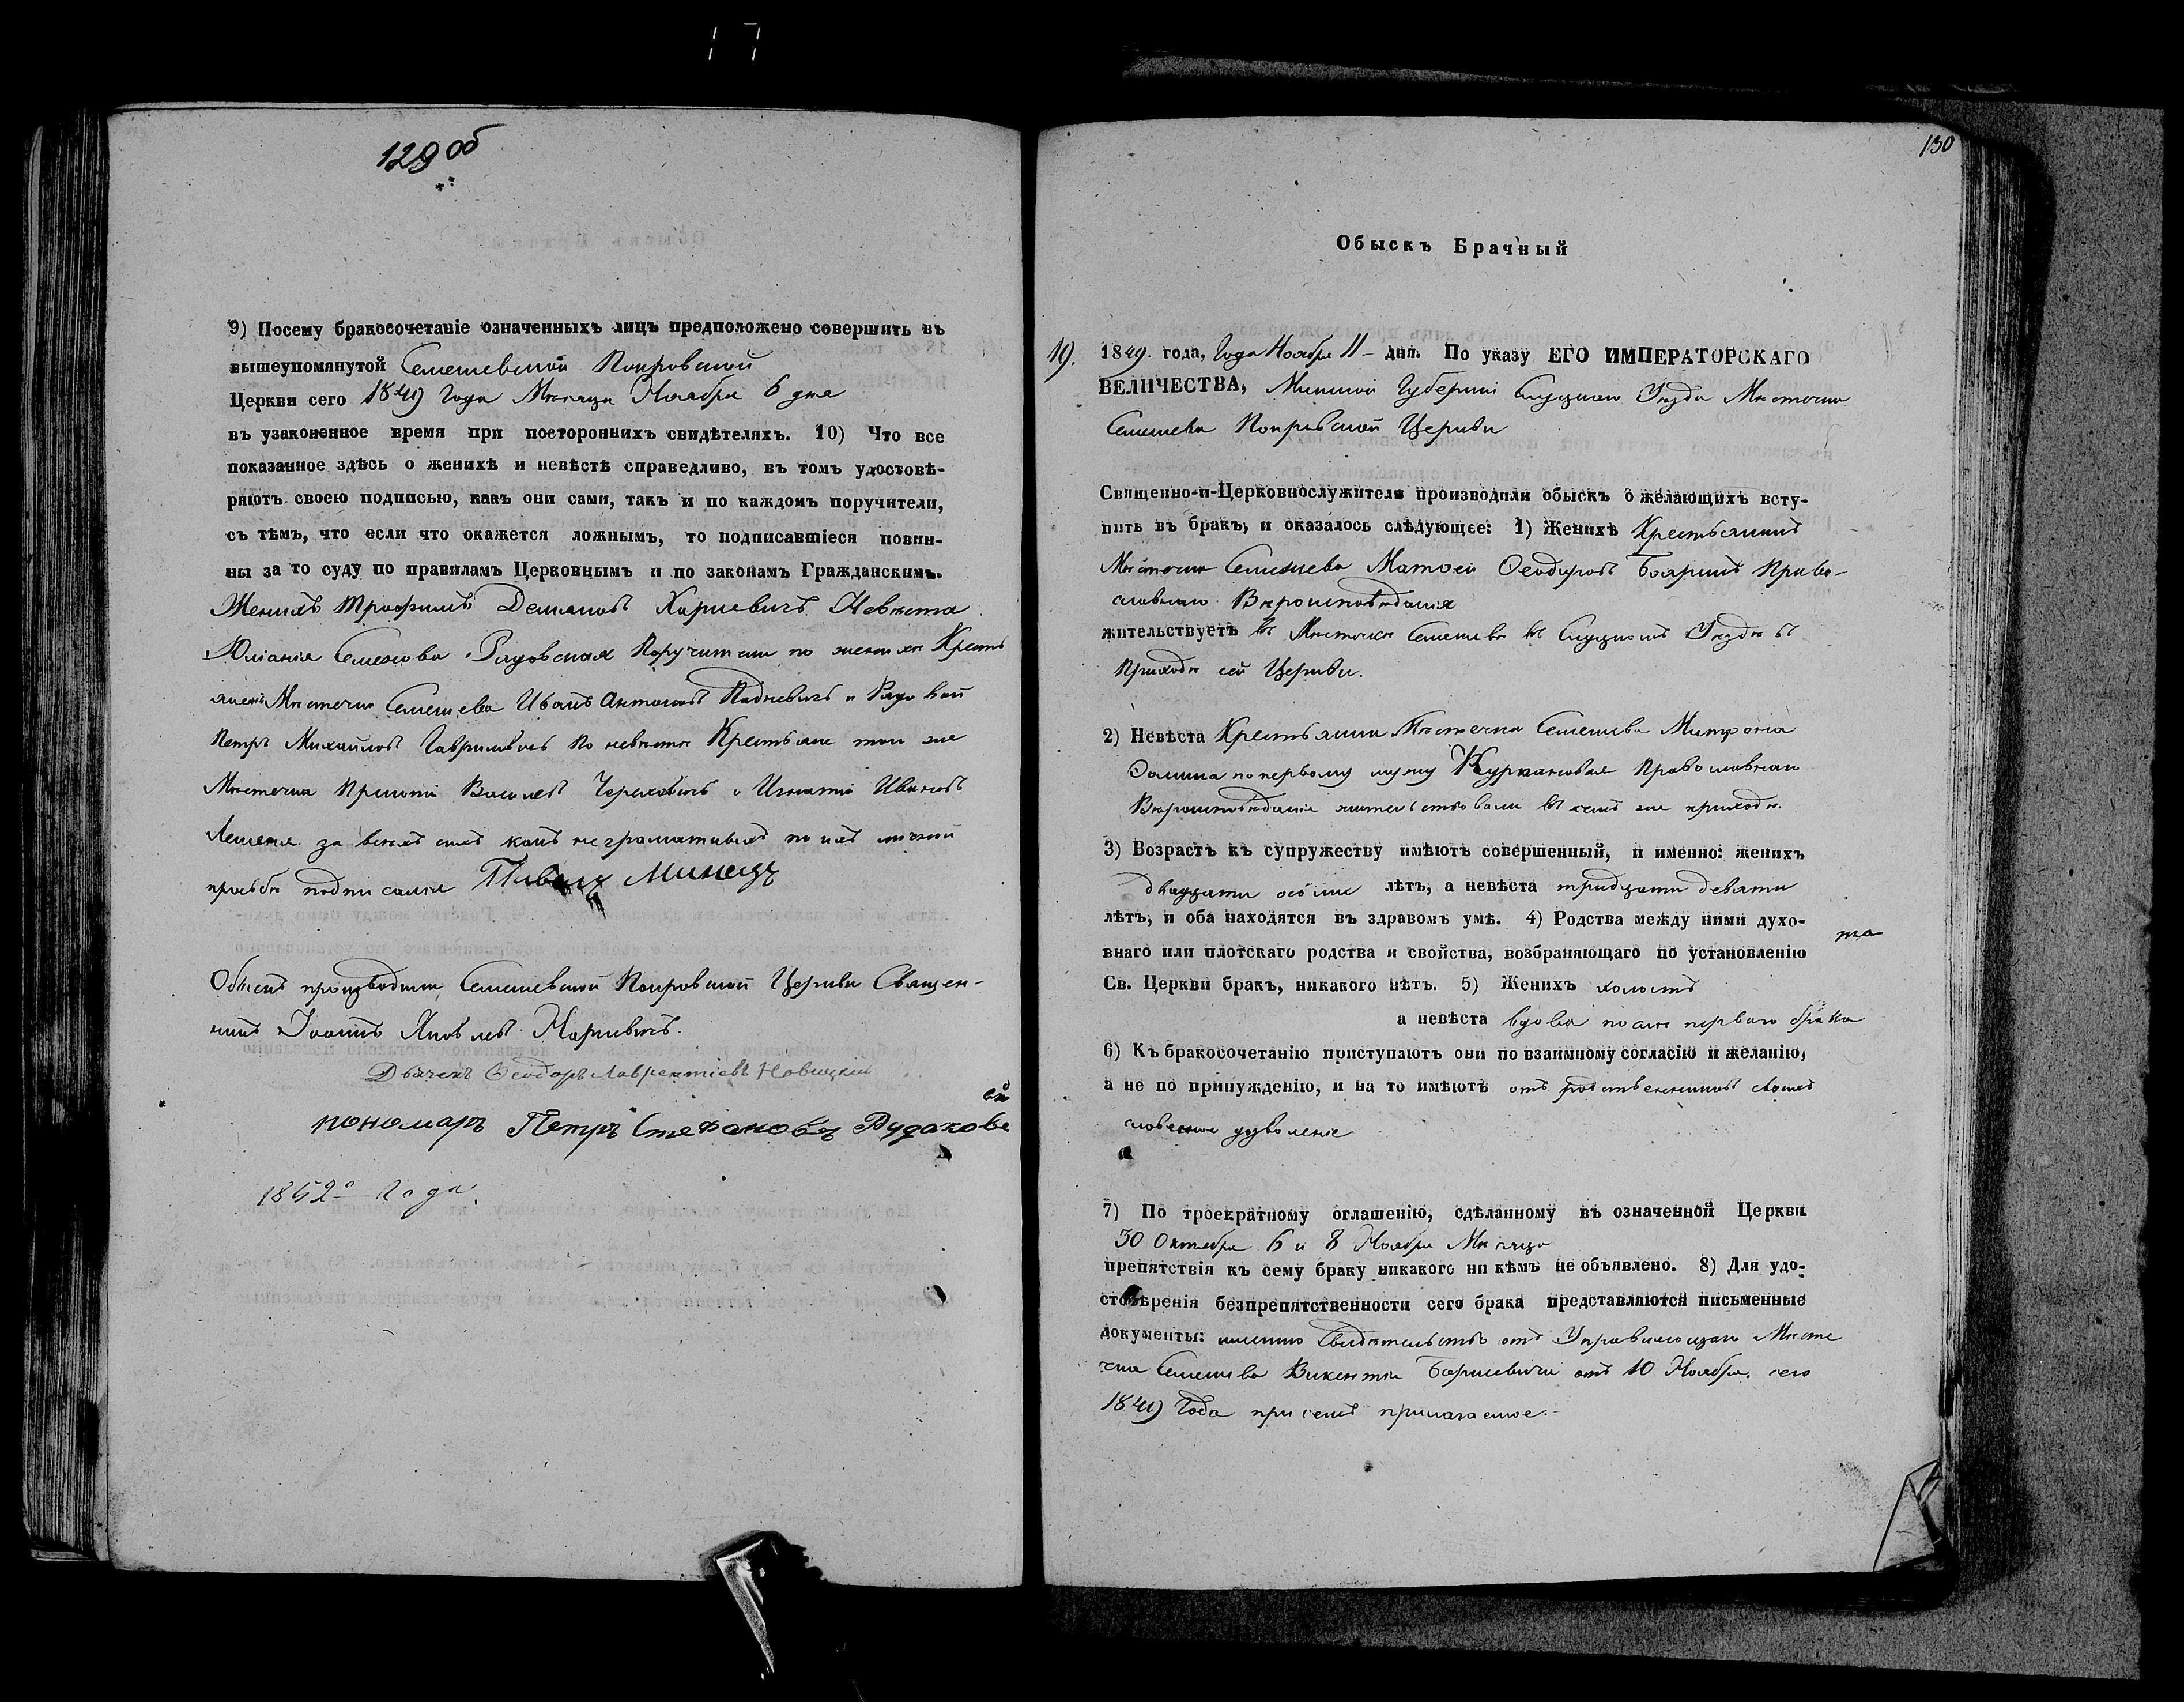 129 об
9) Посему бракосочетаніе означенныхъ лицъ предположено совершить въ
вышеупомянутой Семежевской Покровской
Церкви сего 1849 Года Мѣсяца Ноября 6 дня
въ узаконенное время при постороннихъ свидѣтеляхъ. 10) Что все
показанное здѣсь о женихѣ и невѣстѣ справедливо, въ томъ удостовѣ-
ряютъ своею подписью, какъ они сами, такъ и по каждомъ поручители,
съ тѣмъ, что если что окажется ложнымъ, то подписавшіеся повин-
ны за то суду по правиламъ Церковнымъ и по законамъ Гражданскимъ.
Женихъ Трофимъ Деміановъ Невѣста
Юліанія Семенова Поручители по женихѣ Кресть
яне Мѣстечка Семежева Иванъ Антоновъ и
Петръ Михайловъ по невѣстѣ Крестьяне того же
Мѣстечка Василевъ и Игнатій Ивановъ
за всѣхъ сихъ какъ неграматныхъ по ихъ личной
прозьбѣ подписался
Обыскъ производили Семежевской Покровской Церкви Священ-
никъ Іоаннъ Яковлевъ
Дьячекъ Ѳеодоръ Лаврентіевъ Новицкій
пономаръ Петръ Стефановъ
Года
130
Обыскъ Брачный
19. 1849 года, Года Ноября 11 дня. По указу ЕГО ИМПЕРАТОРСКАГО
ВЕЛИЧЕСТВА, Минской Губерніи Слуцкаго Уѣзда Мѣстечка
Семежева Покровской Церкви
Священно-и-Церковнослужители производили обыскъ о желающихъ всту-
пить въ бракъ, и оказалось слѣдующее: 1) Женихъ Крестьянинъ
Мѣстечка Семежева Матѳей Ѳеодоровъ Бояринъ Право-
славнаго Вѣроисповѣданія
жительствуетъ въ Мѣстечкѣ Семежевѣ въ Слуцкомъ Уѣздѣ въ
Приходѣ сей Церкви.
2) Невѣста Крестьянка Мѣстечка Семежева Митрона
Ѳомина по первому мужу Православнаго
Вѣроисповѣданія жительствовала въ семъ же приходѣ.
3) Возрастъ къ супружеству имѣютъ совершенный, и именно: женихъ
двадцати осьми лѣтъ, а невѣста тридцати девяти
лѣтъ, и оба находятся въ здравомъ умѣ. 4) Родства между ними духо-
внаго или плотскаго родства и свойства, возбраняющаго по установленію
Св. Церкви бракъ, никакого нѣтъ. 5) Женихъ холостъ
а невѣста вдова послѣ перваго брака
6) Къ бракосочетанію приступаютъ они по взаимному согласію и желанію,
а не по принужденію, и на то имѣютъ отъ родственниковъ своихъ
словесное дозволеніе
7) По троекратному оглашенію, сдѣланному въ означенной Церкви
30 Октября 6 и 8 Ноября Мѣсяца
препятствія къ сему браку никакого ни кѣмъ не объявлено. 8) Для удо-
стовѣренія безпрепятственности сего брака представляются письменные
документы: именно Свидѣтельство отъ Управляющаго Мѣсте
чка Семежева Викентія Борисевича отъ 10 Ноября сего
1849 Года при семъ прилагаемое.